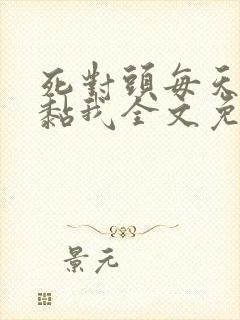 死對頭每天
黏我全文免
景元